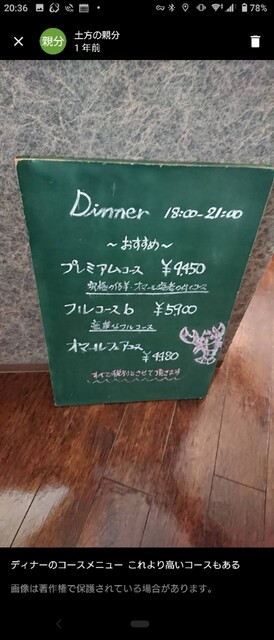 20:36
78%
親分
土方の親分
1 年前
Dinner 18:00-21:00
～おすすめ～
プレミアムコース ¥9450
フルコース b ¥5900
豪華なフルコース
オマールフェアコース
¥4480
すべて税別とさせて頂きます
ディナーのコースメニュー これより高いコースもある
画像は著作権で保護されている場合があります。